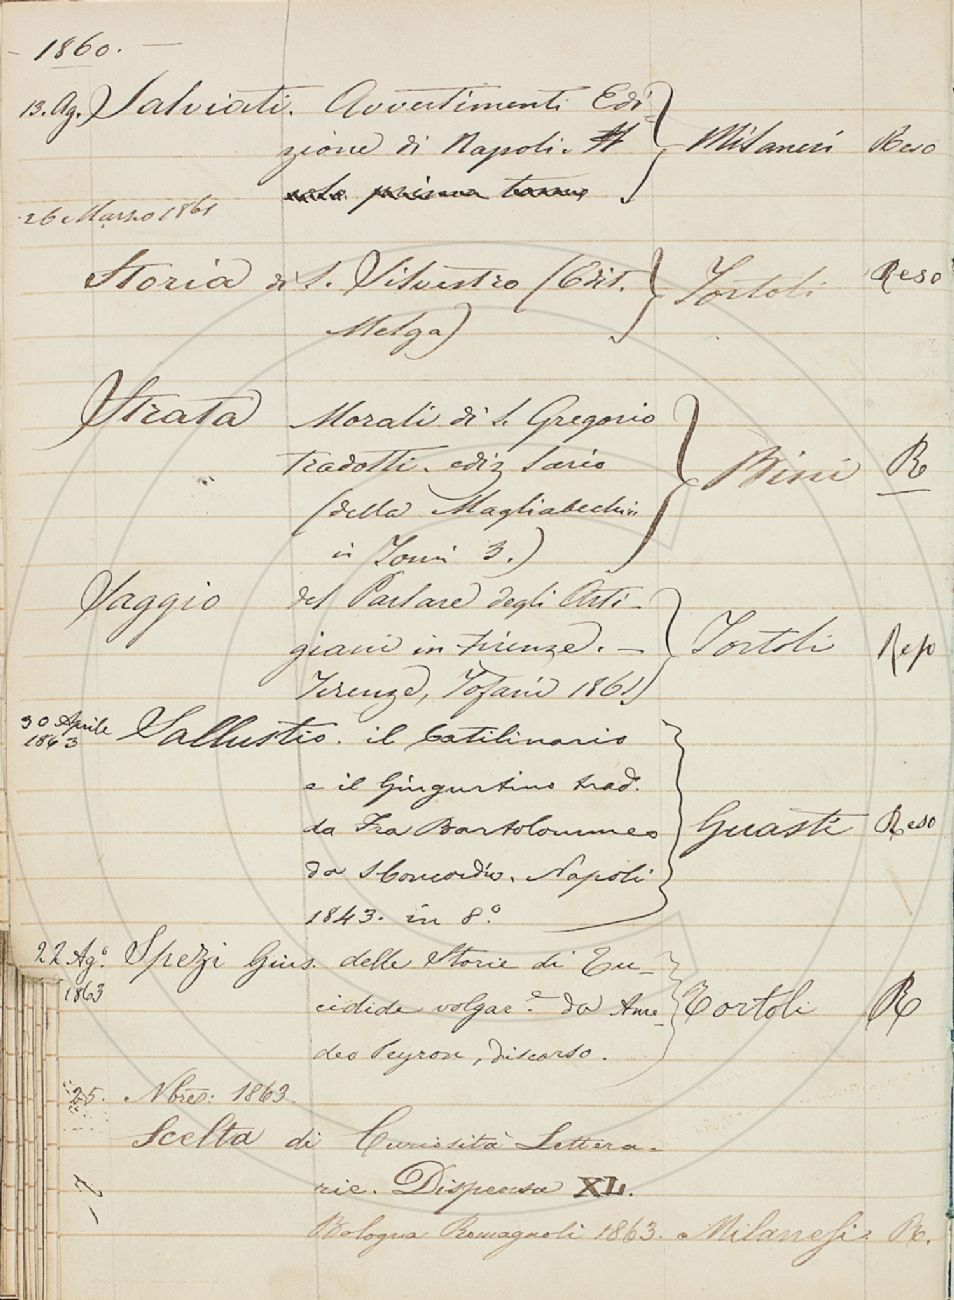 1860.
13. Ag. Salviati. Avvertimenti Edi-
zione di Napoli. Milanesi Reso
prisma
26 Marzo 1861
Storia di S. Silvestro (Edit. Tortoli Reso
Melga)
Strata Morali di S. Gregorio
tradotti. ediz Bini R
(della Magliabechi
in Tomi 3.)
Saggio del Parlare degli Arti-
giani in Firenze. — Tortoli Reso
Firenze, Tofani 1861
30 Aprile
1863 Sallustio. il Catilinario
e il Giugurtino trad.
da Fra Bartolommeo Guasti Reso
da S. Concordio. Napoli
1843. in 8.°
22 Ag.° Spezi Gius. delle Storie di Tu-
1863 cidide volgar.e da Ame- Tortoli R
deo Peyron, discorso.
25. Nbre: 1863.
Scelta di Curiosità Lettera-
rie. Dispensa XL.
Bologna Romagnoli 1863. Milanesi R.